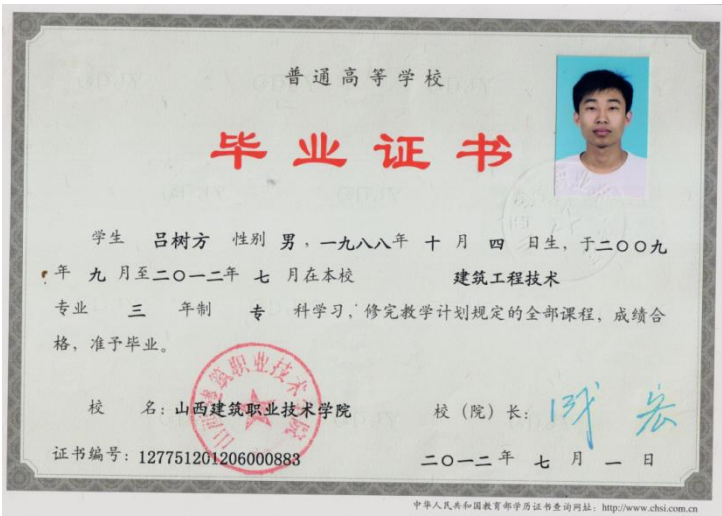 普通高等学校
毕业证书
学生 吕树方 性别 男，一九八八年 十 月 四 日生，于二〇〇九
年 九 月至二〇一二年 七 月在本校 建筑工程技术
专业 三 年制 专 科学习，修完教学计划规定的全部课程，成绩合
格，准予毕业。
校 名：山西建筑职业技术学院 校（院）长：
山西建筑职业技术学院
证书编号：127751201206000883 二〇一二年 七 月 一 日
中华人民共和国教育部学历证书查询网址：http://www.chsi.com.cn